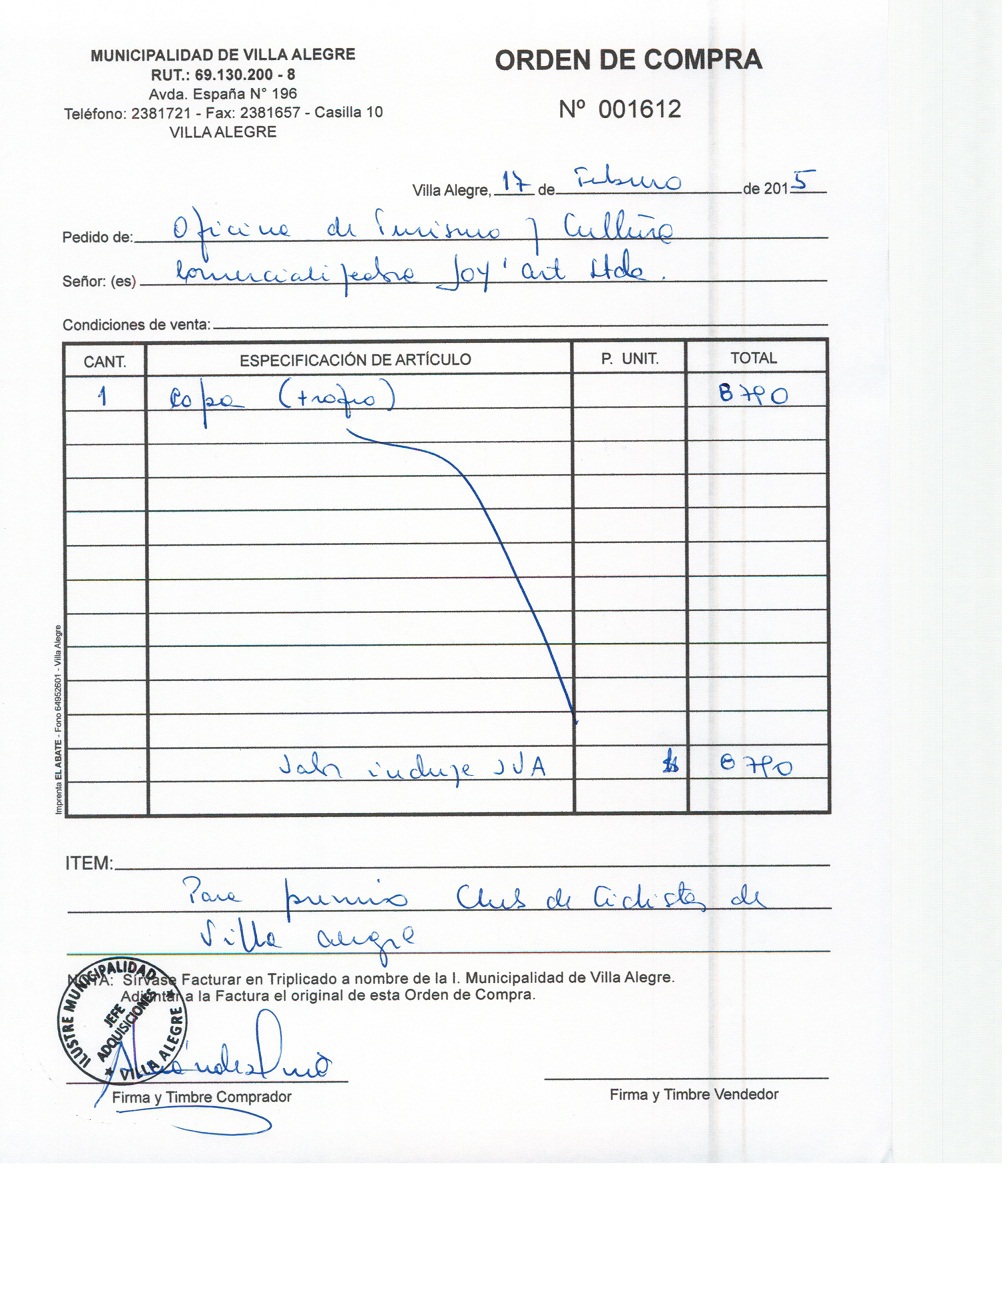 MUNICIPALIDAD DE VILLA ALEGRE
RUT.: 69.130.200 - 8
Avda. España N° 196
Teléfono: 2381721 - Fax: 2381657 - Casilla 10
VILLA ALEGRE
ORDEN DE COMPRA
Nº 001612
Villa Alegre, 17 de Febrero de 2015
Pedido de: Oficina de Turismo y Cultura
Señor: (es) Comercializadora Joy'art Ltda.
Condiciones de venta:
CANT. ESPECIFICACIÓN DE ARTÍCULO P. UNIT. TOTAL
1 Copa (trofeo) 8790
Valor incluye IVA $ 8790
Imprenta EL ABATE - Fono 64952601 - Villa Alegre
ITEM:
Para premio Club de Ciclistas de
Villa Alegre
NOTA: Sírvase Facturar en Triplicado a nombre de la I. Municipalidad de Villa Alegre.
Adjuntar a la Factura el original de esta Orden de Compra.
ILUSTRE MUNICIPALIDAD
JEFE
ADQUISICIONES
VILLA ALEGRE
Firma y Timbre Comprador
Firma y Timbre Vendedor